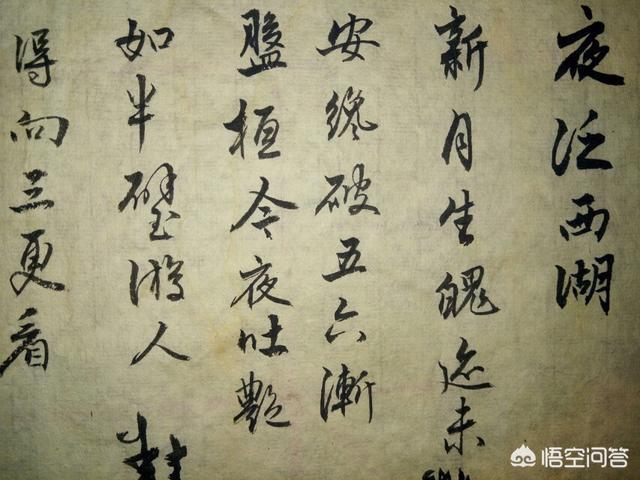 夜泛西湖
新月生魄迹未
安纔破五六漸
盤桓今夜吐艷
如半璧游人
得向三更看
悟空问答